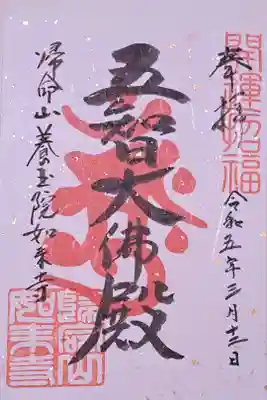 開運招福
奉拝
令和五年三月十三日
五智大佛殿
帰命山養玉院如来寺
歸命山
如来寺